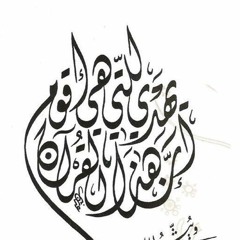 إن هذا القرآن
يهدي للتي هي أقوم